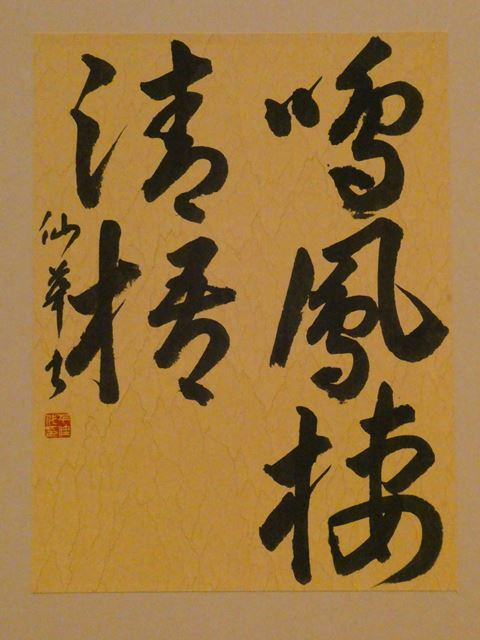 鳴鳳棲
清梧
仙華書